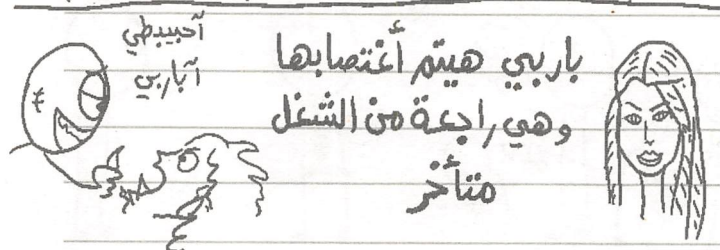 باربي هيتم أغتصابها
وهي راجعة من الشغل
متأخر
آحبيبطي
آباربي